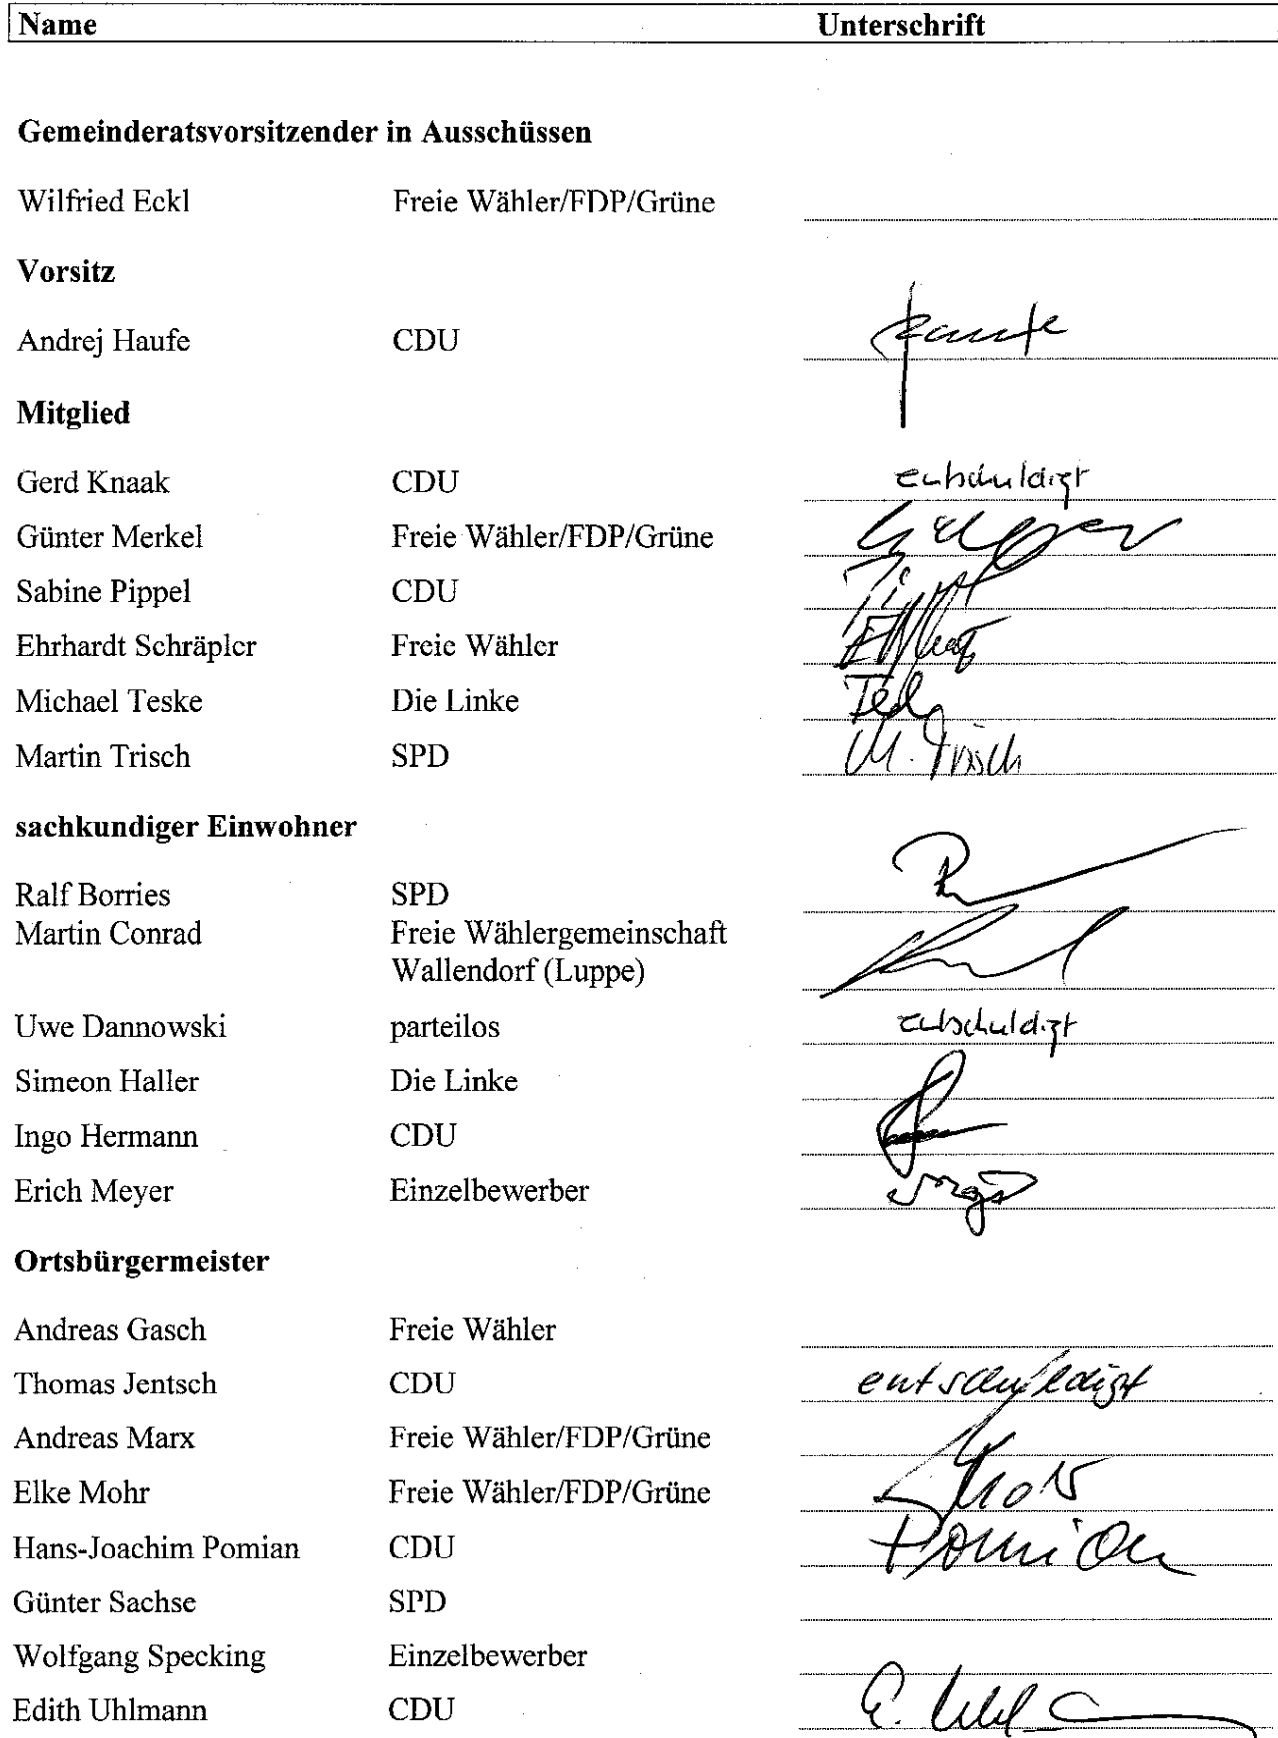 Name Unterschrift
Gemeinderatsvorsitzender in Ausschüssen
Wilfried Eckl Freie Wähler/FDP/Grüne
Vorsitz
Andrej Haufe CDU Haufe
Mitglied
Gerd Knaak CDU entschuldigt
Günter Merkel Freie Wähler/FDP/Grüne
Sabine Pippel CDU
Ehrhardt Schräpler Freie Wähler
Michael Teske Die Linke
Martin Trisch SPD M. Trisch
sachkundiger Einwohner
Ralf Borries SPD
Martin Conrad Freie Wählergemeinschaft
Wallendorf (Luppe)
Uwe Dannowski parteilos entschuldigt
Simeon Haller Die Linke
Ingo Hermann CDU
Erich Meyer Einzelbewerber
Ortsbürgermeister
Andreas Gasch Freie Wähler
Thomas Jentsch CDU entschuldigt
Andreas Marx Freie Wähler/FDP/Grüne
Elke Mohr Freie Wähler/FDP/Grüne Mohr
Hans-Joachim Pomian CDU Pomian
Günter Sachse SPD
Wolfgang Specking Einzelbewerber
Edith Uhlmann CDU